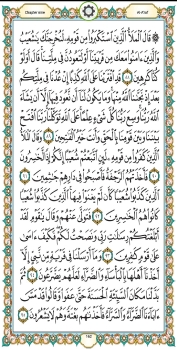 Chapter nine
Al-A'raf
۞ قَالَ ٱلْمَلَأُ ٱلَّذِينَ ٱسْتَكْبَرُوا۟ مِن قَوْمِهِۦ لَنُخْرِجَنَّكَ يَٰشُعَيْبُ
وَٱلَّذِينَ ءَامَنُوا۟ مَعَكَ مِن قَرْيَتِنَآ أَوْ لَتَعُودُنَّ فِى مِلَّتِنَا قَالَ أَوَلَوْ
كُنَّا كَٰرِهِينَ ٨٨ قَدِ ٱفْتَرَيْنَا عَلَى ٱللَّهِ كَذِبًا إِنْ عُدْنَا فِى مِلَّتِكُم
بَعْدَ إِذْ نَجَّىٰنَا ٱللَّهُ مِنْهَا وَمَا يَكُونُ لَنَآ أَن نَّعُودَ فِيهَآ إِلَّآ أَن يَشَآءَ
ٱللَّهُ رَبُّنَا وَسِعَ رَبُّنَا كُلَّ شَىْءٍ عِلْمًا عَلَى ٱللَّهِ تَوَكَّلْنَا رَبَّنَا ٱفْتَحْ
بَيْنَنَا وَبَيْنَ قَوْمِنَا بِٱلْحَقِّ وَأَنتَ خَيْرُ ٱلْفَٰتِحِينَ ٨٩ وَقَالَ ٱلْمَلَأُ
ٱلَّذِينَ كَفَرُوا۟ مِن قَوْمِهِۦ لَئِنِ ٱتَّبَعْتُمْ شُعَيْبًا إِنَّكُمْ إِذًا لَّخَٰسِرُونَ
٩٠ فَأَخَذَتْهُمُ ٱلرَّجْفَةُ فَأَصْبَحُوا۟ فِى دَارِهِمْ جَٰثِمِينَ ٩١
ٱلَّذِينَ كَذَّبُوا۟ شُعَيْبًا كَأَن لَّمْ يَغْنَوْا۟ فِيهَا ٱلَّذِينَ كَذَّبُوا۟ شُعَيْبًا
كَانُوا۟ هُمُ ٱلْخَٰسِرِينَ ٩٢ فَتَوَلَّىٰ عَنْهُمْ وَقَالَ يَٰقَوْمِ لَقَدْ
أَبْلَغْتُكُمْ رِسَٰلَٰتِ رَبِّى وَنَصَحْتُ لَكُمْ فَكَيْفَ ءَاسَىٰ
عَلَىٰ قَوْمٍ كَٰفِرِينَ ٩٣ وَمَآ أَرْسَلْنَا فِى قَرْيَةٍ مِّن نَّبِىٍّ إِلَّآ
أَخَذْنَآ أَهْلَهَا بِٱلْبَأْسَآءِ وَٱلضَّرَّآءِ لَعَلَّهُمْ يَضَّرَّعُونَ ٩٤ ثُمَّ
بَدَّلْنَا مَكَانَ ٱلسَّيِّئَةِ ٱلْحَسَنَةَ حَتَّىٰ عَفَوا۟ وَّقَالُوا۟ قَدْ مَسَّ
ءَابَآءَنَا ٱلضَّرَّآءُ وَٱلسَّرَّآءُ فَأَخَذْنَٰهُم بَغْتَةً وَهُمْ لَا يَشْعُرُونَ ٩٥
162